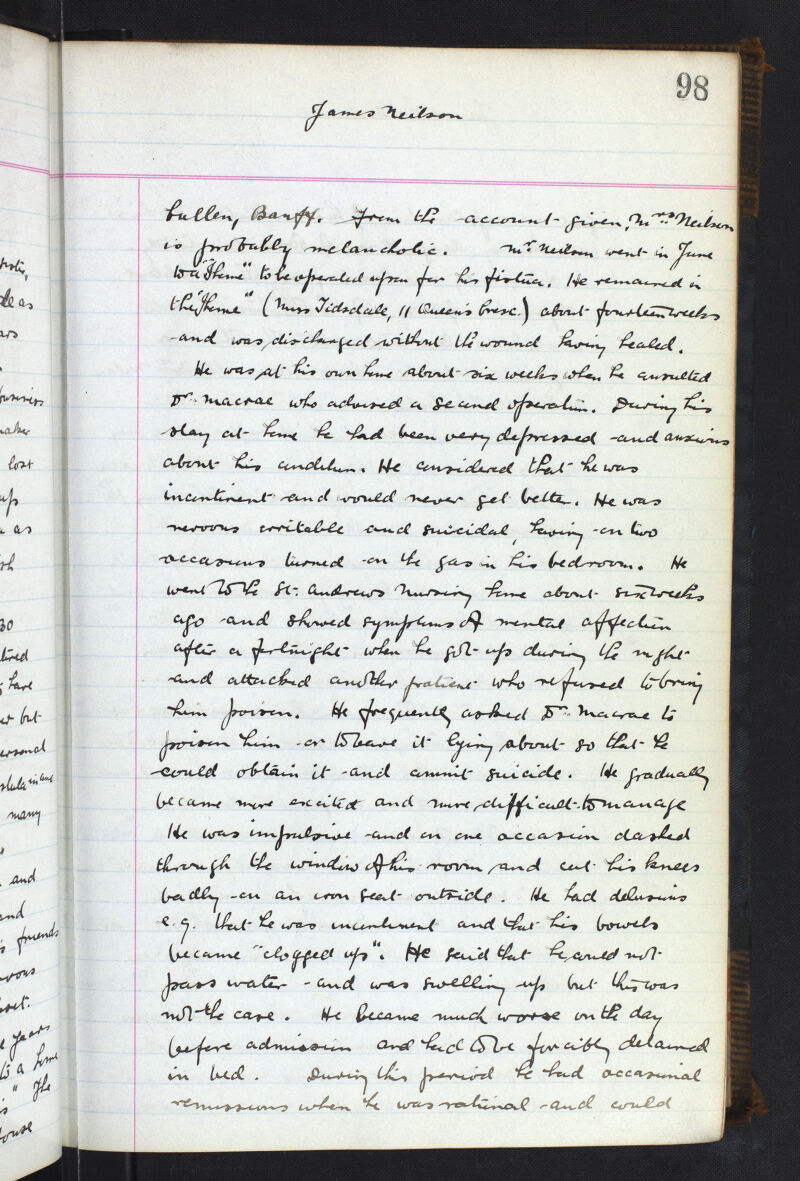 98
James Neilson
Cullen, Banff. From the account given, Mrs Neilson
is probably melancholic. Mr Neilson went in June
to a "Home" to be operated upon for his fistua. He remained in
the "Home" (Miss Tidsdale, 11 Queen's Cresc.) about fourteen weeks
and was discharged without the wound having healed.
He was at his own home about six weeks when he consulted
Dr. Macrae who advised a second operation. During his
stay at home he had been very depressed and anxious
about his condition. He considered that he was
incontinent and would never get better. He was
nervous irritable and suicidal, having on two
occasions turned on the gas in his bedroom. He
went to the St. Andrews Nursing Home about six weeks
ago and showed symptoms of mental affection
after a fortnight when he got up during the night
and attacked another patient who refused to bring
him poison. He frequently asked Dr. Macrae to
poison him or to leave it lying about so that he
could obtain it and commit suicide. He gradually
became more excited and more difficult to manage
He was impulsive and on one occasion dashed
through the window of his room and cut his knees
badly on an iron seat outside. He had delusions
e.g. that he was incontinent and that his bowels
became "clogged up". He said that he could not
pass water and was swelling up but this was
not the case. He became much worse on the day
before admission and had to be forcibly detained
in bed. During this period he had occasional
remissions when he was rational and could
business
lost
up
as
30
have
but
personal
many
and
and
friends
years
to a home
" The
House